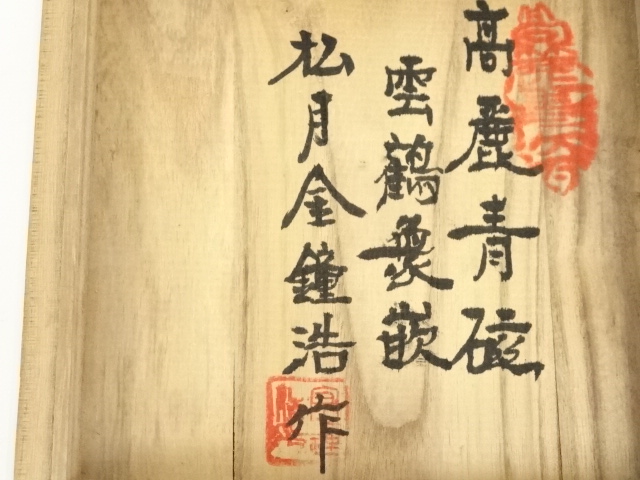 高麗青磁
雲鶴象嵌
松月金鐘浩作